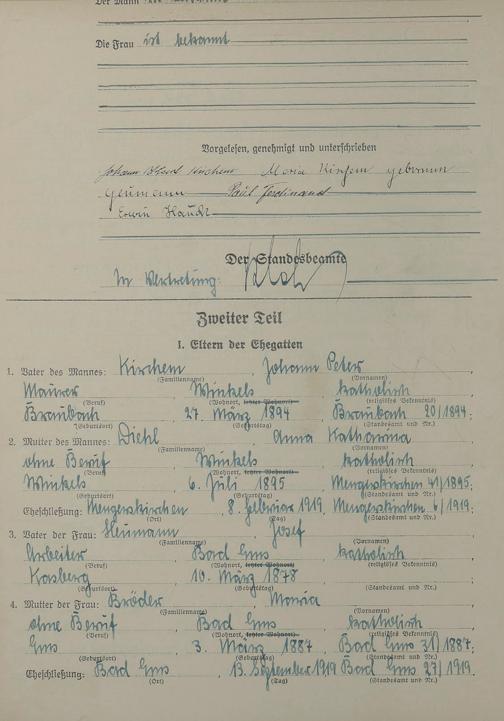 Der Mann
Die Frau ist bekannt
Vorgelesen, genehmigt und unterschrieben
Johann Kirchem Maria Kirchem geborenen
Heumann Paul Ferdinand
Erwin
Der Standesbeamte
In Vertretung:
Zweiter Teil
I. Eltern der Ehegatten
1. Vater des Mannes: Kirchem, Johann Peter
(Familienname) (Vornamen)
Maurer, Winkels, katholisch
(Beruf) (Wohnort, letzter Wohnort) (religiöses Bekenntnis)
Braubach, 27. März 1894, Braubach 20/1894;
(Geburtsort) (Geburtstag) (Standesamt und Nr.)
2. Mutter des Mannes: Diehl, Anna Katharina
(Familienname) (Vornamen)
ohne Beruf, Winkels, katholisch
(Beruf) (Wohnort, letzter Wohnort) (religiöses Bekenntnis)
Winkels, 6. Juli 1895, Mengerskirchen 41/1895;
(Geburtsort) (Geburtstag) (Standesamt und Nr.)
Eheschließung: Mengerskirchen, 8. Februar 1919, Mengerskirchen 6/1919;
(Ort) (Tag) (Standesamt und Nr.)
3. Vater der Frau: Heumann, Josef
(Familienname) (Vornamen)
Arbeiter, Bad Ems, katholisch
(Beruf) (Wohnort, letzter Wohnort) (religiöses Bekenntnis)
Kasberg, 10. März 1878
(Geburtsort) (Geburtstag) (Standesamt und Nr.)
4. Mutter der Frau: Bröder, Maria
(Familienname) (Vornamen)
ohne Beruf, Bad Ems, katholisch
(Beruf) (Wohnort, letzter Wohnort) (religiöses Bekenntnis)
Ems, 3. März 1887, Bad Ems 31/1887;
(Geburtsort) (Geburtstag) (Standesamt und Nr.)
Eheschließung: Bad Ems, 13. September 1919 Bad Ems 27/1919.
(Ort) (Tag) (Standesamt und Nr.)